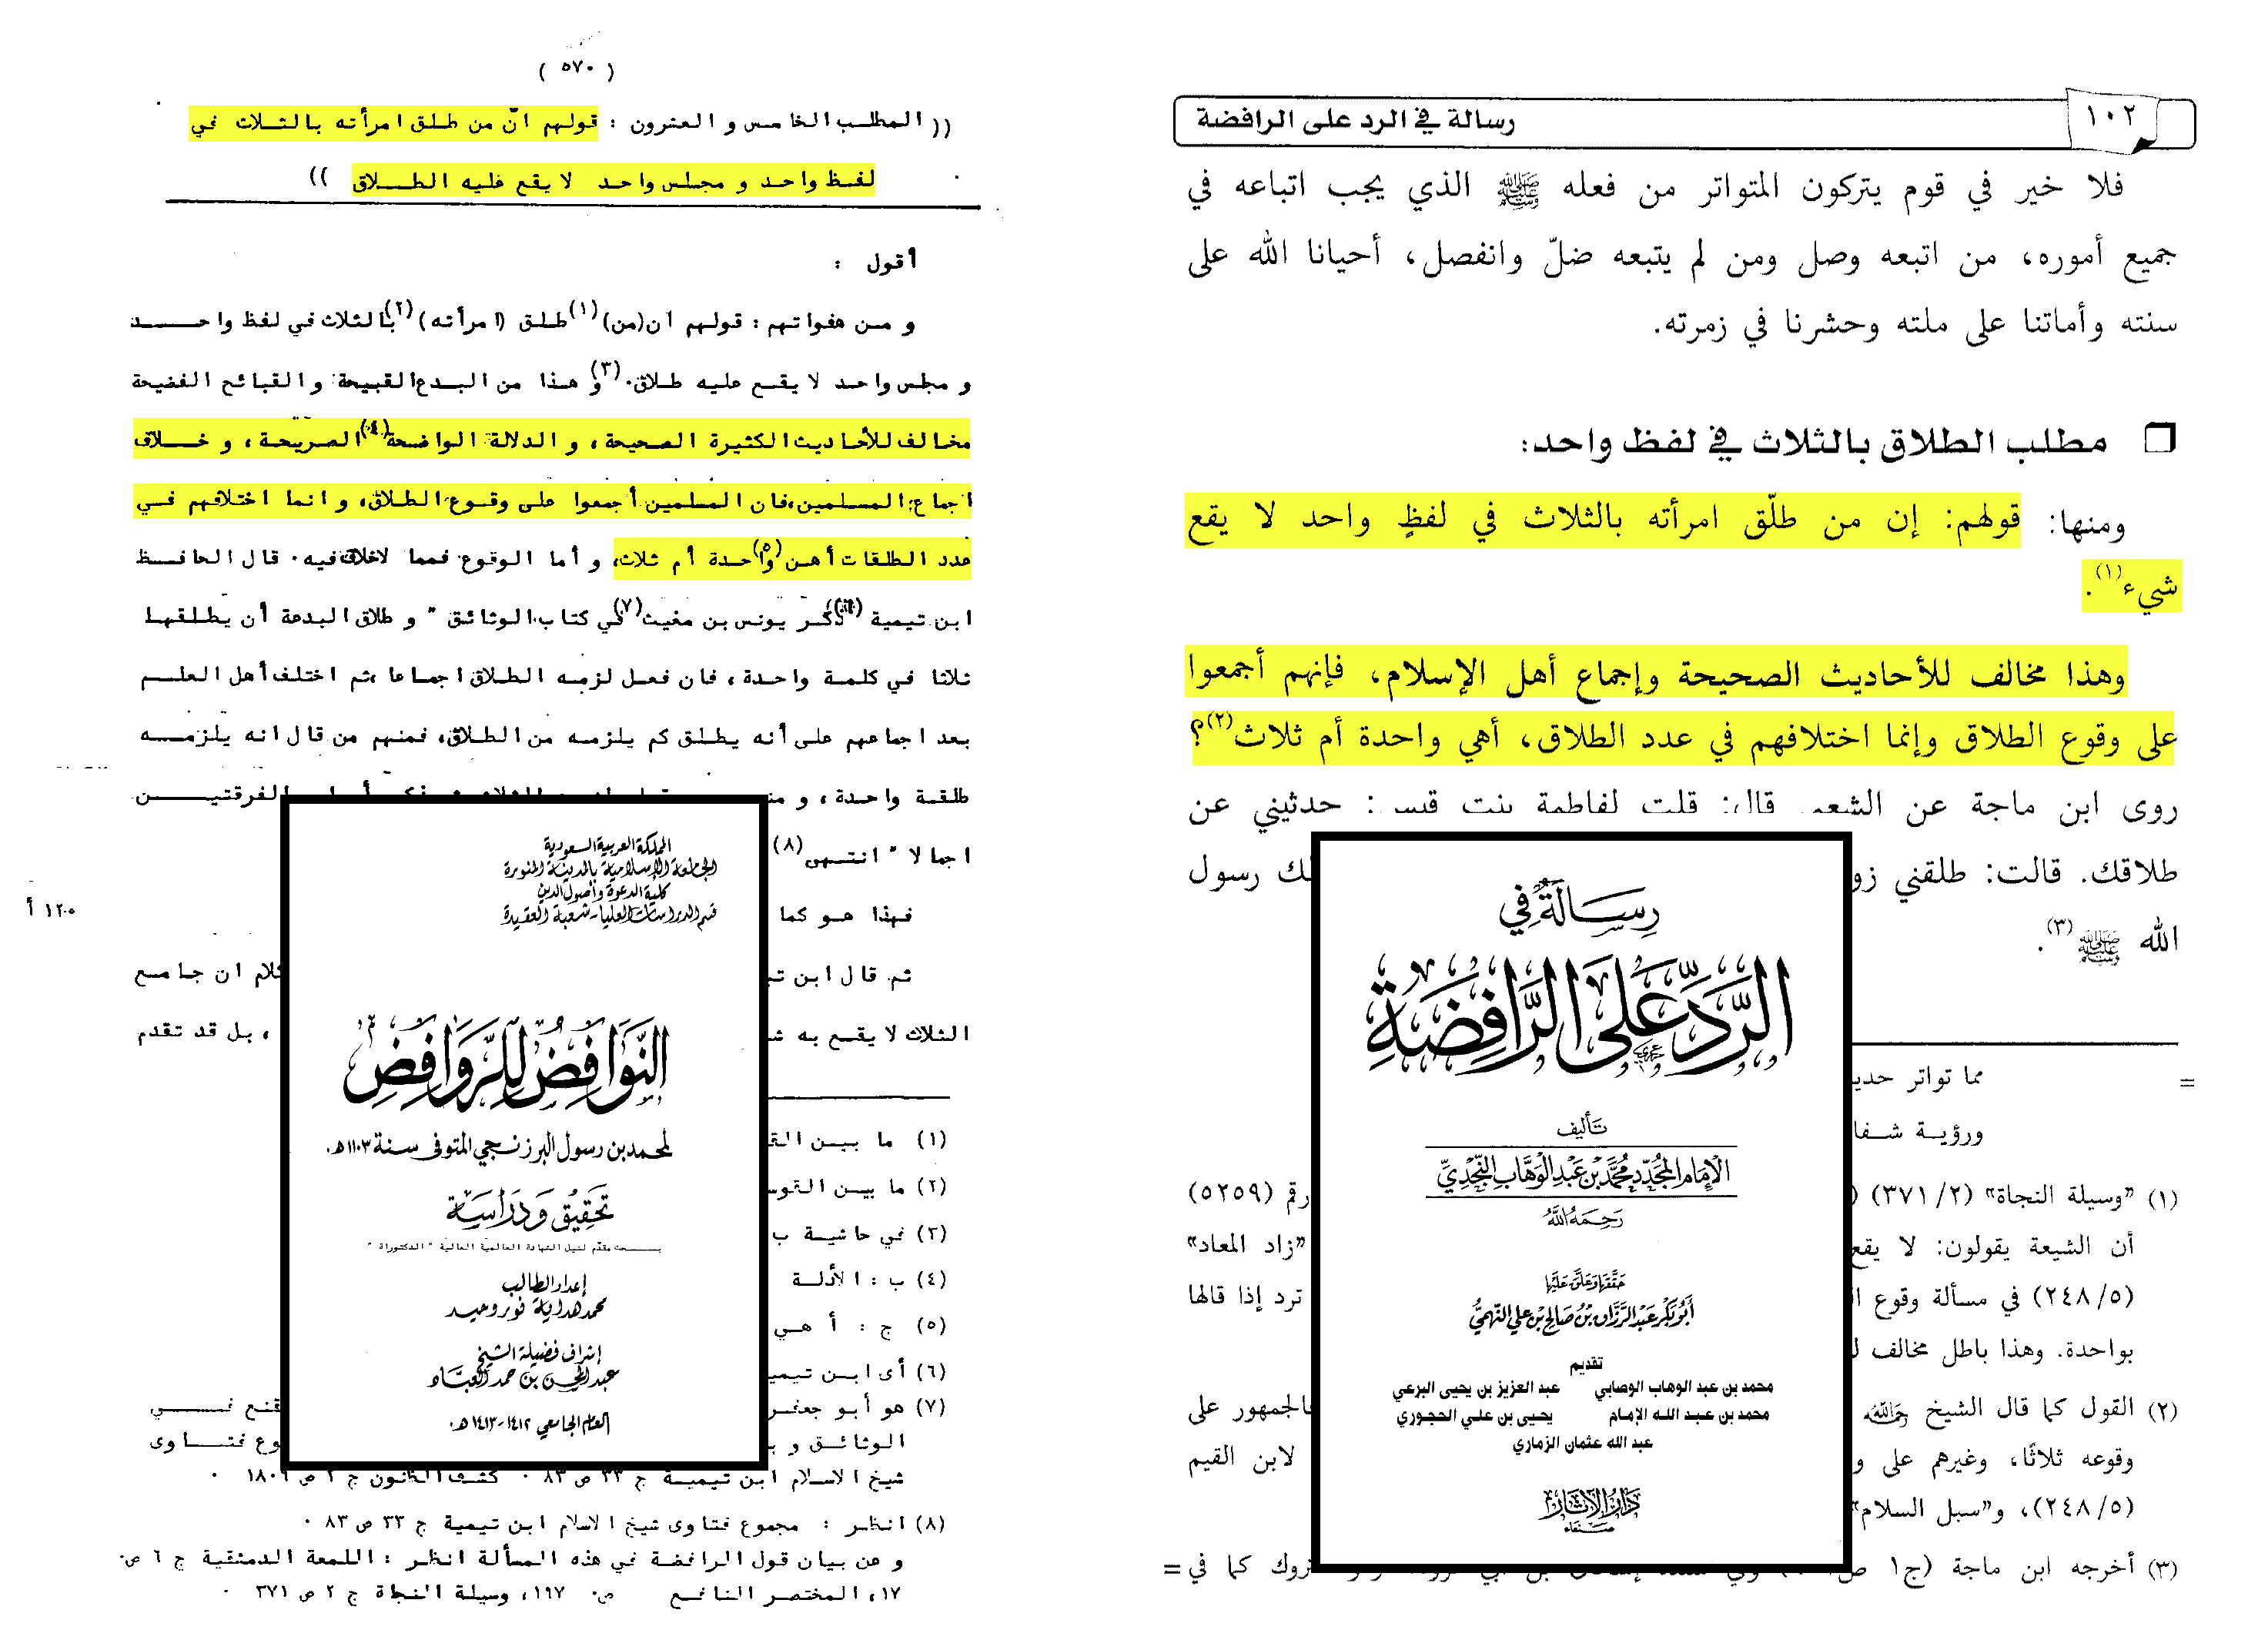 ١٠٢
رسالة في الرد على الرافضة
فلا خير في قوم يتركون المتواتر من فعله ﷺ الذي يجب اتباعه في
جميع أموره، من اتبعه وصل ومن لم يتبعه ضلّ وانفصل، أحيانا الله على
سنته وأماتنا على ملته وحشرنا في زمرته.
مطلب الطلاق بالثلاث في لفظ واحد:
ومنها: قولهم: إن من طلّق امرأته بالثلاث في لفظٍ واحد لا يقع
شيء(١).
وهذا مخالف للأحاديث الصحيحة وإجماع أهل الإسلام، فإنهم أجمعوا
على وقوع الطلاق وإنما اختلافهم في عدد الطلاق، أهي واحدة أم ثلاث(٢)؟
روى ابن ماجة عن الشعبي قال: قلت لفاطمة بنت قيس: حدثيني عن
طلاقك. قالت: طلقني رسول
الله ﷺ(٣).
=
مما تواتر
ورؤية
(١) «وسيلة النجاة» (٢/ ٣٧١) رقم (٥٢٥٩)
أن الشيعة يقولون: لا يقع «زاد المعاد»
(٥/ ٢٤٨) في مسألة وقوع ترد إذا قالها
بواحدة. وهذا باطل مخالف
(٢) القول كما قال الشيخ رحمه الله فالجمهور على
وقوعه ثلاثًا، وغيرهم على لابن القيم
(٥/ ٢٤٨)، و«سبل السلام»
(٣) أخرجه ابن ماجة (ج١ كما في=
رسالة في
الرد على الرافضة
تأليف
الإمام المجدد محمد بن عبد الوهاب النجدي
رحمه الله
حققها وعلق عليها
أبو بكر عبد الرزاق بن صالح بن علي النهمي
تقديم
محمد بن عبد الوهاب الوصابي عبد العزيز بن يحيى البرعي
محمد بن عبد الله الإمام يحيى بن علي الحجوري
عبد الله عثمان الذماري
دار الآثار
صنعاء
( ٥٧٠ )
(( المطلب الخامس والعشرون : قولهم انّ من طلق امرأته بالثلاث في
لفظ واحد و مجلس واحد لا يقع عليه الطلاق ))
أقول :
و من هفواتهم : قولهم ان(من)(١) طلق (امرأته)(٢) بالثلاث في لفظ واحد
و مجلس واحد لا يقع عليه طلاق.(٣) و هذا من البدع القبيحة و القبائح الفضيحة
مخالف للأحاديث الكثيرة الصحيحة ، و الدلالة الواضحة(٤) الصريحة ، و خلاف
اجماع المسلمين، فان المسلمين أجمعوا على وقوع الطلاق، و انما اختلافهم في
عدد الطلقات أهن(٥) واحدة أم ثلاث، و أما الوقوع فمما لاخلاف فيه . قال الحافظ
ابن تيمية (٦) ذكر يونس بن مغيث(٧) في كتاب الوثائق " و طلاق البدعة أن يطلقها
ثلاثا في كلمة واحدة ، فان فعل لزمه الطلاق اجماعا ،ثم اختلف أهل العلم
بعد اجماعهم على أنه يطلق كم يلزمه من الطلاق، فمنهم من قال انه يلزمه
طلقة واحدة ، و الفرقتين
اجمالا " انتهى(٨)
١٢٠ أ
فهذا هو كما
ثم قال ابن كلام ان جامع
الثلاث لا يقع به ، بل قد تقدم
(١) ما بين
(٢) ما بين
(٣) في حاشية ب
(٤) ب : الأدلة
(٥) ج : أ هي
(٦) أى ابن
(٧) هو أبو جعفر في
الوثائق و فتاوى
شيخ الاسلام ابن تيمية ج ٣٣ ص ٨٣ . كشف الظنون ج ٢ ص
(٨) انظر : مجموع فتاوى شيخ الاسلام ابن تيمية ج ٣٣ ص ٨٣ .
و عن بيان قول الرافضة في هذه المسألة انظر : اللمعة الدمشقية ج ٦ ص.
١٧، المختصر النافع ص. ١٩٧، وسيلة النجاة ج ٢ ص ٣٧١ .
المملكة العربية السعودية
الجامعة الإسلامية بالمدينة المنورة
كلية الدعوة وأصول الدين
قسم الدراسات العليا - شعبة العقيدة
النوافض للروافض
لمحمد بن رسول البرزنجي المتوفى سنة ١١٠٣هـ.
تحقيق ودراسة
بحث مقدم لنيل الشهادة العالمية العالية " الدكتوراة "
إعداد الطالب
محمد هداية نور وحيد
إشراف فضيلة الشيخ
عبد المحسن بن حمد العباد
العام الجامعي ١٤١٢-١٤١٣ هـ.